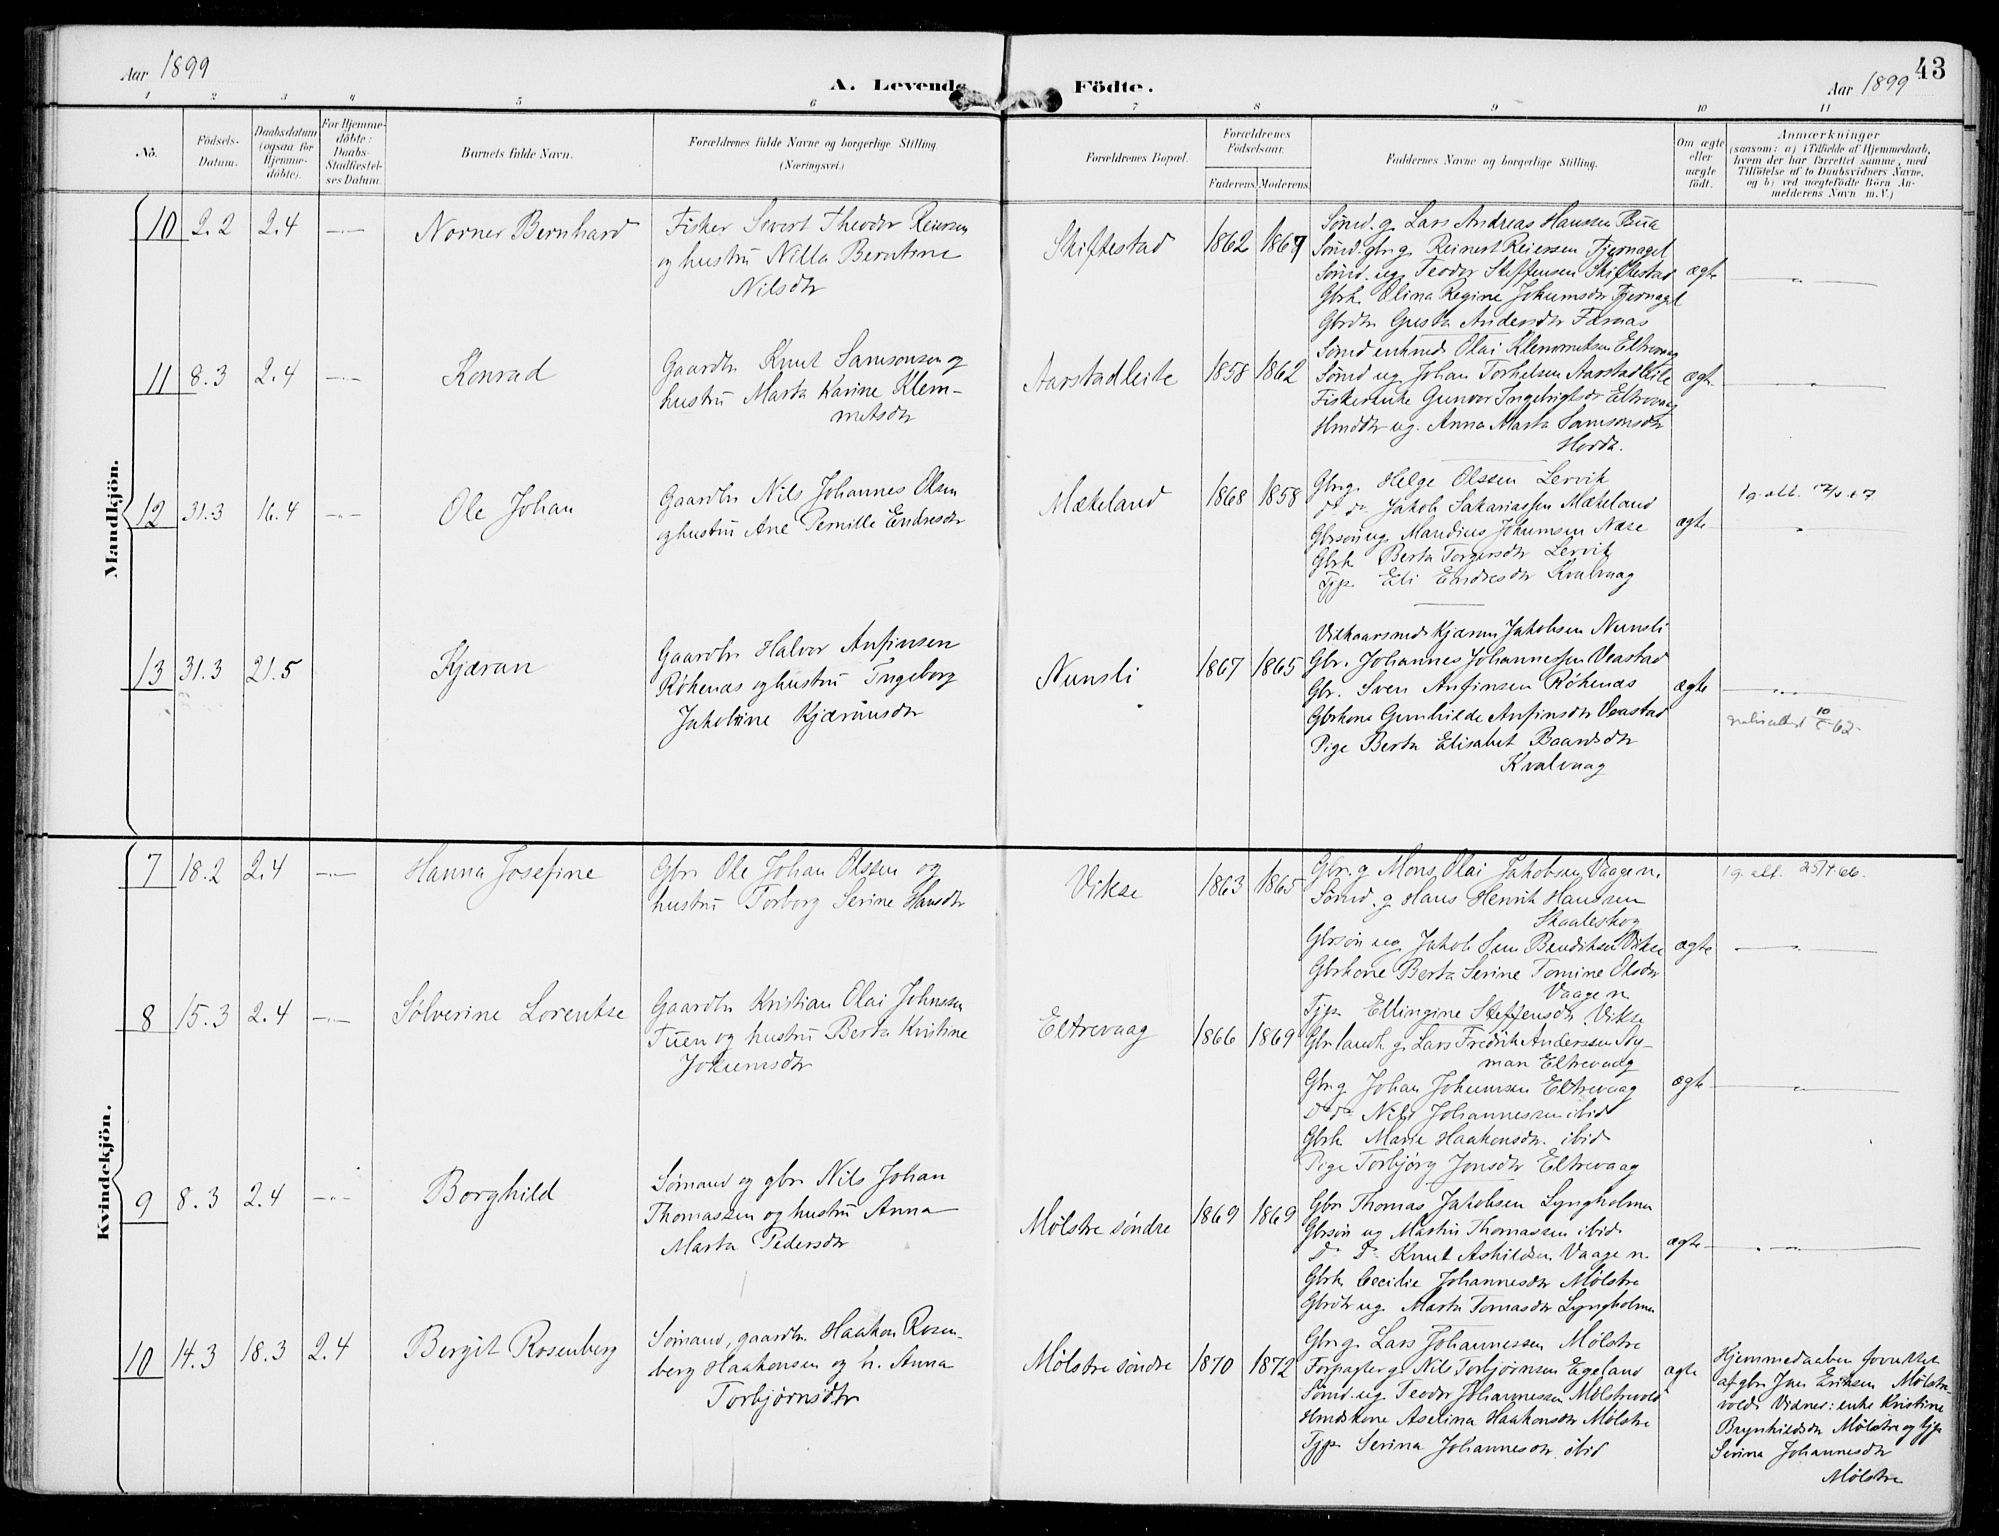 43
Aar 1899
A. Levende Födte.
Aar 1899
1 2 3 4 5 6 7 8 9 10 11
No.
Födsels-
Datum.
Daabsdatum
(ogsaa for
Hjemme-
döbte).
For Hjemme-
döbte:
Daabs-
Stadfæstel-
ses Datum.
Barnets fulde Navn.
Forældrenes fulde Navne og borgerlige Stilling
(Næringsvei.)
Forældrenes Bopæl.
Forældrenes
Födselsaar.
Faderens. Moderens.
Faddernes Navne og borgerlige Stilling.
Om ægte
eller
uægte
födt.
Anmærkninger
(saasom: a) i Tilfælde af Hjemmedaab,
hvem der har forrettet samme, med
Tilföielse af to Daabsvidners Navne,
og b) ved uægtefödte Börn An-
melderens Navn m.V.)
Mandkjön.
10 2.2 2.4 —"—
Norner Bernhard
Fisker Sivert Theodor Reiersen
og hustru Nilla Berntine
Nilsdtr
Skiftestad
1862 1869
Sömd. g. Lars Andreas Hanssen Bua
Sömd. gbr g. Reinert Reiersen Tjernagel
Sömd. ug. Teodor Steffensen Skiftestad
Gbrk. Olina Regine Jokumsdtr Tjernagel
Gbrdtr. Gusta Andersdtr Færnas
ægte
—"—
11 8.3 2.4 —"—
Konrad
Gaardbr Knut Samsonsen og
hustru Marta Karine Klem-
metsdtr
Aarstadleite
1858 1862
Sömd enkemd. Olai Klemmetsen Eltrevaag
Sömd ug Johan Torkelsen Aarstadleite
Fiskerenke Gunvor Ingebrigtsdr Eltrevaag
Hmddtr ug. Anna Marta Samsonsdtr
ægte
—"—
12 31.3 16.4 —"—
Ole Johan
Gaardbr Nils Johannes Olsen
og hustru Ane Pernille Endresdtr
Mækeland
1868 1858
Gbr g. Helge Olssen Lervik
do do Jakob Sakariassen Mækeland
Gbrsön ug. Mandius Jokumsen Næse
Gbrk Berta Torgersdtr Lervik
Tjp. Eli Endresdtr Kvalvaag
ægte
—"—
13 31.3 21.5
Kjæran
Gaardbr Halvor Anfinsen
Røkenæs og hustru Ingeborg
Jakobine Kjæransdtr
Nunsli
1867 1865
Vilkaarsmd Kjæran Jakobsen Nunsli
Gbr. Johannes Johannessen Veastad
Gbr. Sven Anfinsen Røkenæs
Gbrkone Gunhilde Anfinsdtr Veastad
Pige Berta Elisabet Baardsdtr
Kvalvaag
ægte
—"—
Kvindekjön.
7 18.2 2.4 —"—
Hanna Josefine
Gbr. Ole Johan Olssen og
hustru Torborg Serine Hansdtr
Vikse
1863 1865
Gbr. g Mons Olai Jakobsen Vaage n.
Sömd. g Hans Henrik Hanssen
Skaaleskog
Gbrsön ug Jakob Sem Bendiksen Vikse
Gbrkone Berta Serine Tomine Olsdtr
Vaage n.
Tjp. Ellingine Steffensdtr. Vikse
ægte
—"—
8 15.3 2.4 —"—
Sølverine Lorentse
Gaardbr Kristian Olai Johnssen
Tuen og hustru Berta Kristine
Jokumsdtr
Eltrevaag
1866 1869
Gbr landh g. Lars Fredrik Anderssen Ny-
man Eltrevaag
Gbr g Johan Jokumsen Eltrevaag
Do do Nils Johannessen ibid
Gbrk Marie Haakonsdtr. ibid
Pige Torbjörg Jonsdtr Eltrevaag
ægte
—"—
9 8.3 2.4 —"—
Borghild
Sømand og gbr Nils Johan
Thomassen og hustru Anna
Marta Pedersdtr
Mølstre søndre
1869 1869
Gbr Thomas Jakobsen Lyngholmen
Gbrsön ug Martin Thomassen ibid
Do Do Knut Askildsen Vaage n.
Gbrk Cecilie Johannesdtr Mølstre
Gbrdtr ug. Marta Tomasdtr Lyngholmen
ægte
—"—
10 14.3 18.3 2.4
Bergit Rosenberg
Sømand, gaardbr. Haakon Rosen-
berg Haakonsen og h. Anna
Torbjørnsdtr
Mølstre søndre
1870 1872
Gbr g. Lars Johannessen Mølstre
Forpagter g. Nils Torbjørnsen Egeland
Sömd ug. Teodor Johannessen Mølstrevold
Hmdskone Aselina Haakonsdtr Mølstre
Tjp. Serina Johannesdtr. ibid
ægte
Hjemmedaaben forrettet
af gbr Jon Eriksen Mølstre-
vold. Vidner: enke Kristine
Brynhildsdtr Mølstre og tjp
Serina Johannesdtr
Mølstre